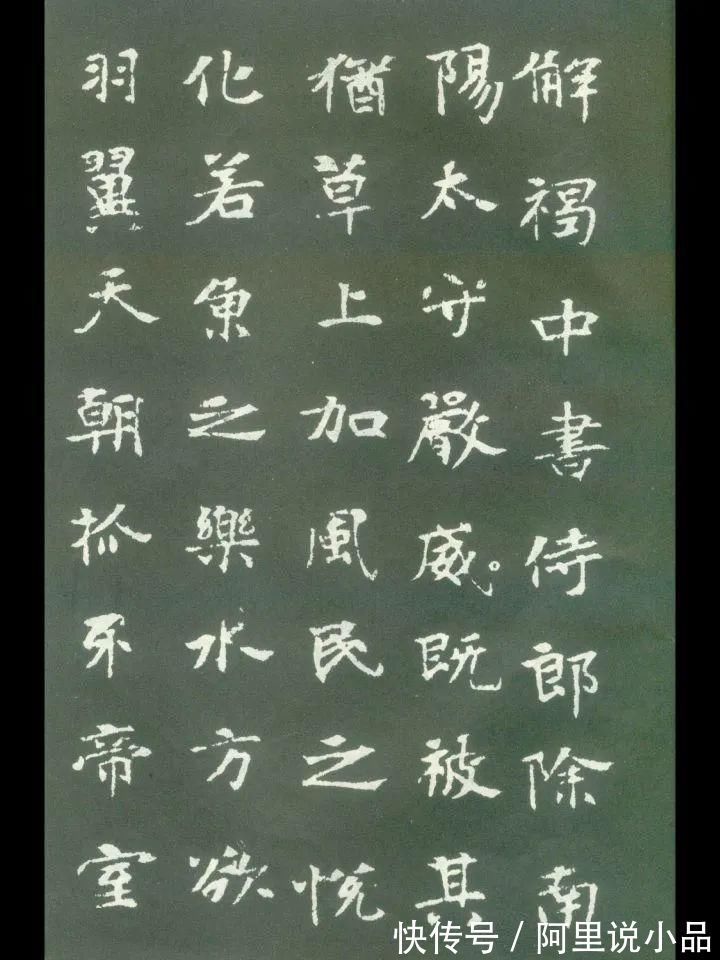 解褐中書侍郎除南
陽太守嚴威既被其
猶草上加風民之悅
化若魚之樂水方欲
羽翼天朝抓牙帝室
快传号/阿里说小品